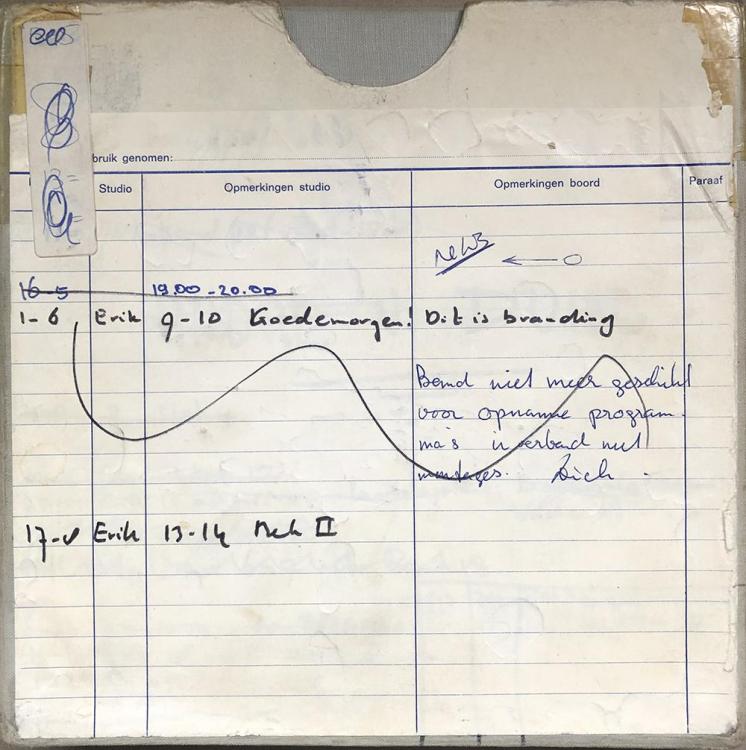 bruik genomen:
Studio Opmerkingen studio Opmerkingen boord Paraaf
news
16-5 19.00-20.00
1-6 Erik 9-10 Goedemorgen! Dit is branding
Band niet meer geschikt
voor opname program-
ma's in verband met
montages. Dick.
Erik 13-14 II